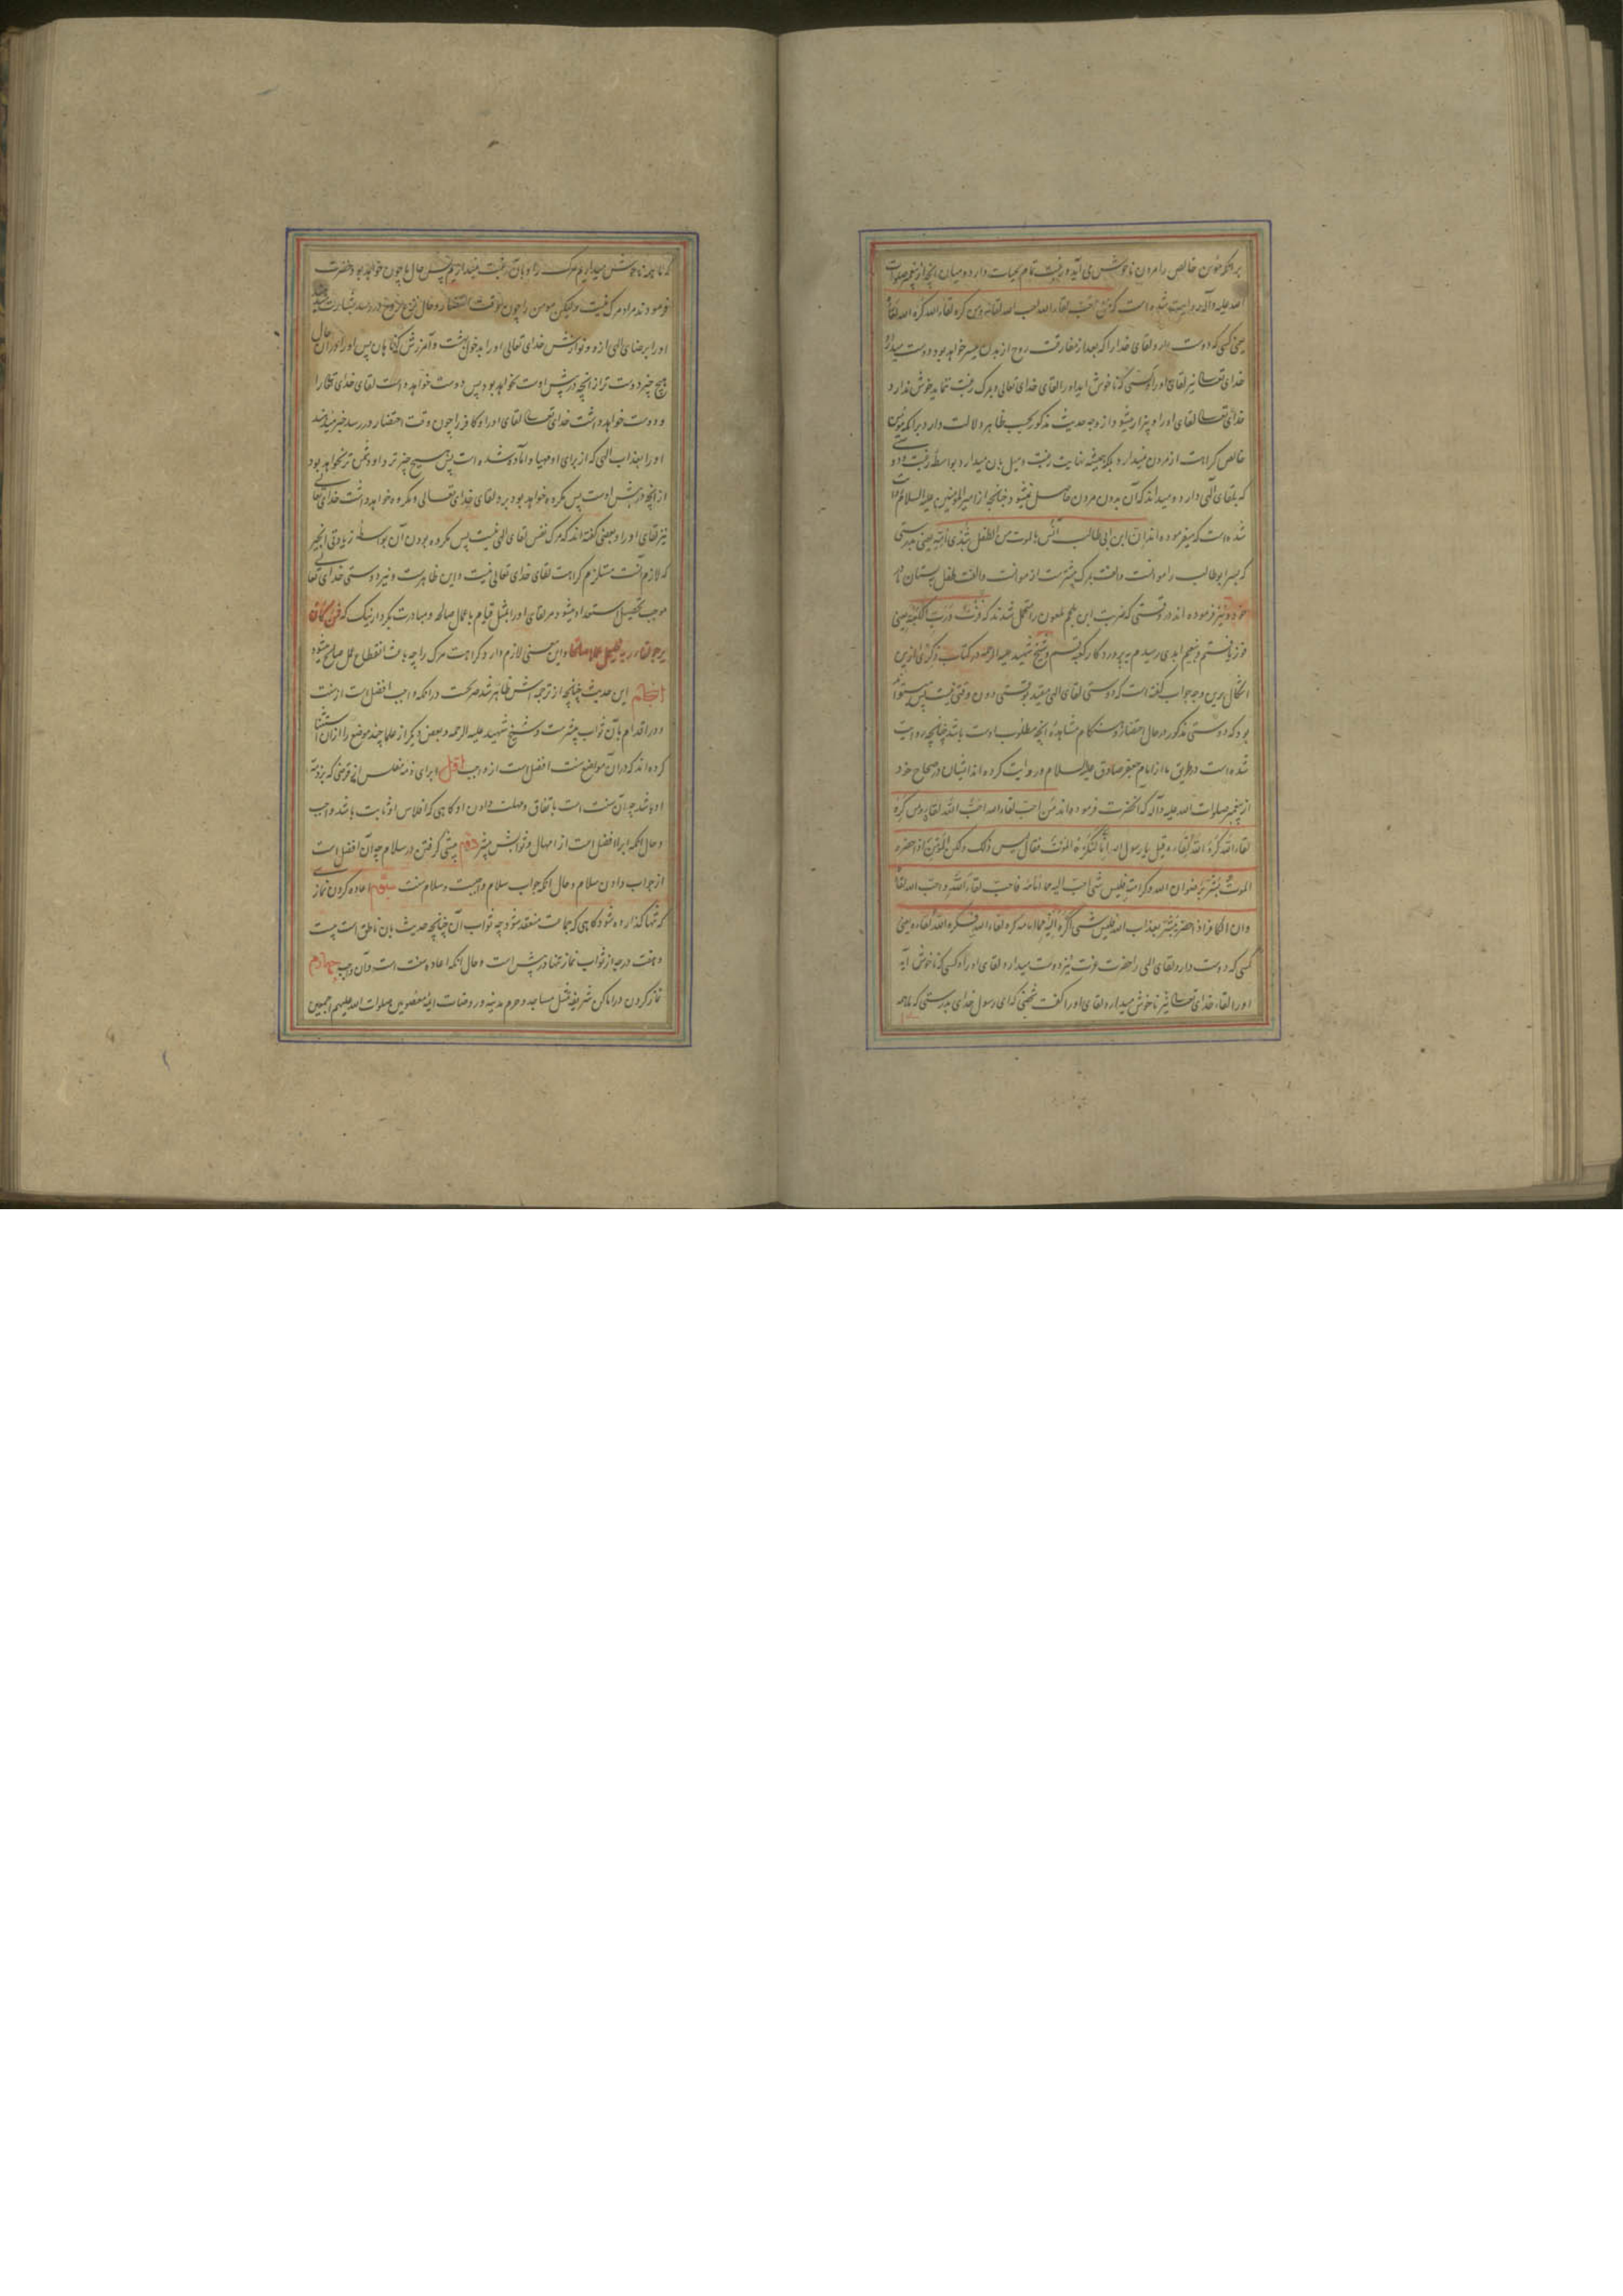 برآنکه مؤمن خالص را مردن ناخوش می آید و رغبت تمام بحیات دارد و میان آنچه از پیغمبر صلوات
الله علیه وآله روایت شده است که من احب لقاء الله احب الله لقاءه ومن کره لقاء الله کره الله لقاءه
یعنی کسی که دوست دارد لقای خدا را که بعد از مفارقت روح از بدن میسر خواهد بود دوست میدارد
خدای تعالی نیز لقای او را و کسی که ناخوش آید او را لقای خدای تعالی و بمرک رغبت ننماید خوش ندارد
خدای تعالی لقای او را و بیزار میشود از وجه حدیث مذکور بحسب ظاهر دلالت دارد برآنکه مؤمن
خالص کراهت از مردن نمیدارد بلکه همیشه نهایت رغبت و میل بان میدارد بواسطه رغبت و دوستی
که بلقای الهی دارد و میداند که آن بدون مردن حاصل نمیشود چنانچه از امیرالمؤمنین علیه السلام روایت
شده است که میفرموده اند ان ابن ابی طالب آنس بالموت من الطفل بثدی امه یعنی بدرستی
که پسر ابوطالب را موانست والفت بمرک بیشترست از موانست والفت طفل بپستان مادر
خود و نیز فرموده اند در وقتی که ضربت ابن ملجم ملعون را متحمل شدند که فزت ورب الکعبه یعنی
فوز یافتم و بنعیم ابدی رسیدم به پروردگار کعبه قسم و شیخ شهید علیه الرحمه در کتاب ذکری ازین
اشکال برین وجه جواب گفته است که دوستی لقای الهی مقید بوقتی دون وقتی نیست پس میتواند
بود که دوستی مذکور در حال احتضار و هنکام مشاهده آنچه مطلوب اوست باشد چنانچه روایت
شده است در طریق ما از امام جعفر صادق علیه السلام و روایت کرده اند ایشان در صحاح خود
از پیغمبر صلوات الله علیه وآله که آنحضرت فرموده اند من احب لقاء الله احب الله لقاءه ومن کره
لقاء الله کره الله لقاءه قیل یا رسول الله انا لنکره الموت فقال لیس ذلک ولکن المؤمن اذا حضره
الموت بشر برضوان الله وکرامته فلیس شئ احب الیه مما امامه فاحب لقاء الله واحب الله لقاءه
وان الکافر اذا حضر بشر بعذاب الله فلیس شئ اکره الیه مما امامه کره لقاء الله فکره الله لقاءه یعنی
کسی که دوست دارد لقای الهی را حضرت عزت نیز دوست میدارد لقای او را و کسی که ناخوش آید
او را لقاء خدای تعالی نیز ناخوش میدارد لقای او را گفت شخصی که ای رسول خدای بدرستی که ما همه
که ما همه ناخوش میداریم مرک را و بآن رغبت نمیداریم پس حال ما چون خواهد بود حضرت
فرمودند مراد مرک نیست ولیکن مومن را چون وقت احتضار و حال نزع روح در رسد بشارت میدهند
او را برضای الهی ازو و نوازش خدای تعالی او را بدخول بهشت و آمرزش گناهان پس او را در آن حال
هیچ چیز دوست تر از آنچه در پیش اوست نخواهد بود پس دوست خواهد داشت لقای خدای تعالی را
و دوست خواهد داشت خدای تعالی لقای او را و کافر را چون وقت احتضار در رسد خبر میدهند
او را بعذاب الهی که از برای او مهیا و آماده شده است پس هیچ چیز نزد او دشمن تر نخواهد بود
از آنچه در پیش اوست پس مکروه خواهد بود برو لقای خدای تعالی و مکروه خواهد داشت خدای تعالی
نیز لقای او را و بعضی گفته اند که مرک نفس لقای الهی نیست پس مکروه بودن آن بواسطه
که لازم آنست مستلزم کراهت لقای خدای تعالی نیست و این ظاهرست و نیز دوستی خدای تعالی
موجب تحصیل استعداد میشود مر لقای او را بمثل قیام باعمال صالحه و مبادرت بکردار نیک که فمن کان
یرجوا لقاء ربه فلیعمل عملا صالحا و این معنی لازم دارد کراهت مرک را چه باعث انقطاع عمل صالح میشود
این حدیث چنانچه از ترجمه اش ظاهر شد صریحست در آنکه واجب افضل است از سنت
و در اقدام بآن ثواب بیشترست و شیخ شهید علیه الرحمه و بعض دیگر از علما چند موضع را از آن استثنا
کرده اند که در آن مواضع سنت افضل است از واجب اول ابرای ذمه مفلس از قرضی که بر ذمه
او باشد چه آن سنت است باتفاق و مهلت دادن او گاهی که افلاس او ثابت باشد واجب
و حال آنکه ابراء افضل است از امهال و ثوابش بیشتر دوم پیشی گرفتن در سلام چه آن افضل است
از جواب دادن سلام و حال آنکه جواب سلام واجبست و سلام سنت سیم اعاده کردن نماز
که تنها گذارده شود گاهی که جماعت منعقد شود چه ثواب آن چنانچه حدیث بان ناطق است بیست
و هفت درجه از ثواب نماز تنها در پیش است و حال آنکه اعاده سنت است و آن واجب چهارم
نماز کردن در اماکن شریفه مثل مساجد و حرم مدینه و روضات ائمه معصومین صلوات الله علیهم اجمعین